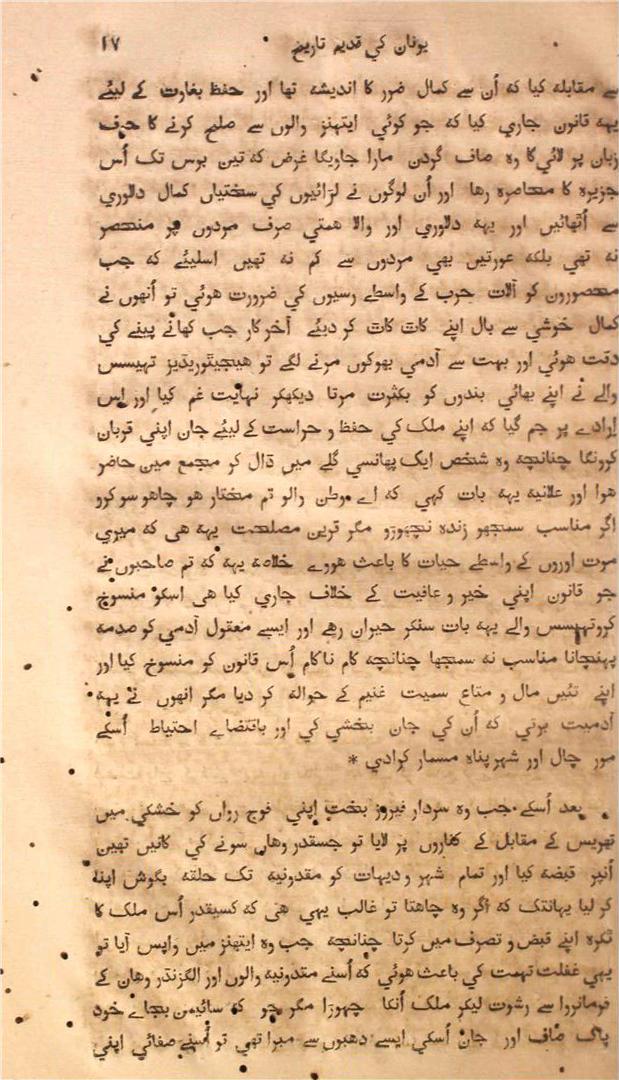 یونان کي قدیم تاریخ ۱۷
سے مقابلہ کیا کہ اُن سے کمال ضرر کا اندیشہ تھا اور حفظ بغاوت کے لیئے
یہہ قانون جاري کیا کہ جو کوئي ایتھنز والوں سے صلح کرنے کا حرف
زبان پر لائیگا وہ صاف گردن مارا جاویگا غرض کہ تین برس تک اُس
جزیرہ کا محاصرہ رھا اور اُن لوگوں نے لڑائیوں کي سختیاں کمال دلاوري
سے اُتھائیں اور یہہ دلاوري اور والا همتي صرف مردوں پر منحصر
نہ تھي بلکہ عورتیں بھي مردوں سے کم نہ تھیں اسلیئے کہ جب
محصورون کو آلات حرب کے واسطے رسیوں کي ضرورت هوئي تو اُنھوں نے
کمال خوشي سے بال اپنے کاٹ کاٹ کر دیئے آخر کار جب کھانے پینے کي
دقت هوئي اور بہت سے آدمي بھوکوں مرنے لگے تو هیجیٹوریڈیز تہیسس
والے نے اپنے بھائي بندوں کو بکثرت مرتا دیکھکر نہایت غم کیا اور اِس
اِرادے پر جم گیا کہ اپنے ملک کي حفظ و حراست کے لیئے جان اپني قربان
کرونگا چنانچہ وہ شخص ایک پھانسي گلے میں ڈال کر مجمع میں حاضر
هوا اور علانیہ یہہ بات کہي کہ اے وطن والو تم مختار هو چاهو سو کرو
اگر مناسب سمجھو زندہ نچھوڑو مگر قرین مصلحت یہہ هی کہ میري
موت اوروں کے واسطے حیات کا باعث هووے خلاصہ یہہ کہ تم صاحبوں نے
جو قانون اپني خیر و عافیت کے خلاف جاري کیا هی اسکو منسوخ
کرو تہیسس والے یہہ بات سنکر حیران رهے اور ایسے معقول آدمي کو صدمہ
پہنچانا مناسب نہ سمجھا چنانچہ کام ناکام اُس قانون کو منسوخ کیا اور
اپنے تئیں مال و متاع سمیت غنیم کے حوالہ کر دیا مگر انھوں نے یہہ
آدمیت برتي کہ اُن کي جان بخشي کي اور باقتضاے احتیاط اُسکے
مور چال اور شہر پناہ مسمار کرادي *
بعد اُسکے جب وہ سردار فیروز بخت اپني فوج رواں کو خشکي میں
تھریس کے مقابل کے کناروں پر لایا تو جسقدر وهاں سونے کي کانیں تھیں
اُنپر قبضہ کیا اور تمام شہر و دیہات کو مقدونیہ تک حلقہ بگوش اپنا
کر لیا یہانتک کہ اگر وہ چاهتا تو غالب یہي هی کہ کسیقدر اُس ملک کا
ٹکرہ اپنے قبض و تصرف میں کرتا چنانچہ جب وہ ایتھنز میں واپس آیا تو
یہي غفلت تہمت کي باعث هوئي کہ اُسنے مقدونیہ والوں اور الگزنڈر وهان کے
فرمانروا سے رشوت لیکر ملک اُنکا چھوڑا مگر جو کہ سائیمن بجاے خود
پاک صاف اور جان اُسکي ایسے دھبوں سے مبرا تھي تو اُسنے صفائي اپني